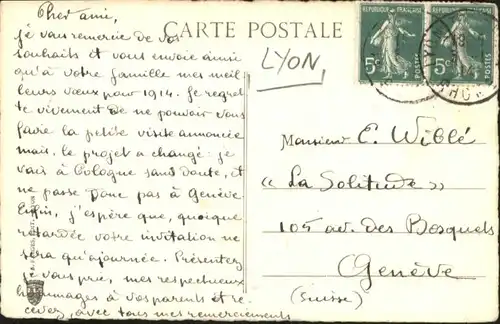 Cher ami,
je vous remercie de vos
souhaits et vous envoie ainsi
qu'à votre famille mes meil
leurs vœux pour 1914. Je regret
te vivement de ne pouvoir vous
faire la petite visite annoncée
mais le projet a changé : je
vais à Cologne sans doute, et
ne passe donc pas à Genève.
Enfin, j'espère que, quoique
retardée votre invitation ne
sera qu'ajournée. Présentez
je vous prie, mes respectueux
hommages à vos parents et re-
cevez, avec tous mes remerciements
CARTE POSTALE
LYON
REPUBLIQUE FRANÇAISE
5c
POSTES
REPUBLIQUE FRANÇAISE
5c
POSTES
LYON
Monsieur E. Wiblé
« La Solitude »
105 av. des Bosquets
Genève
(Suisse)